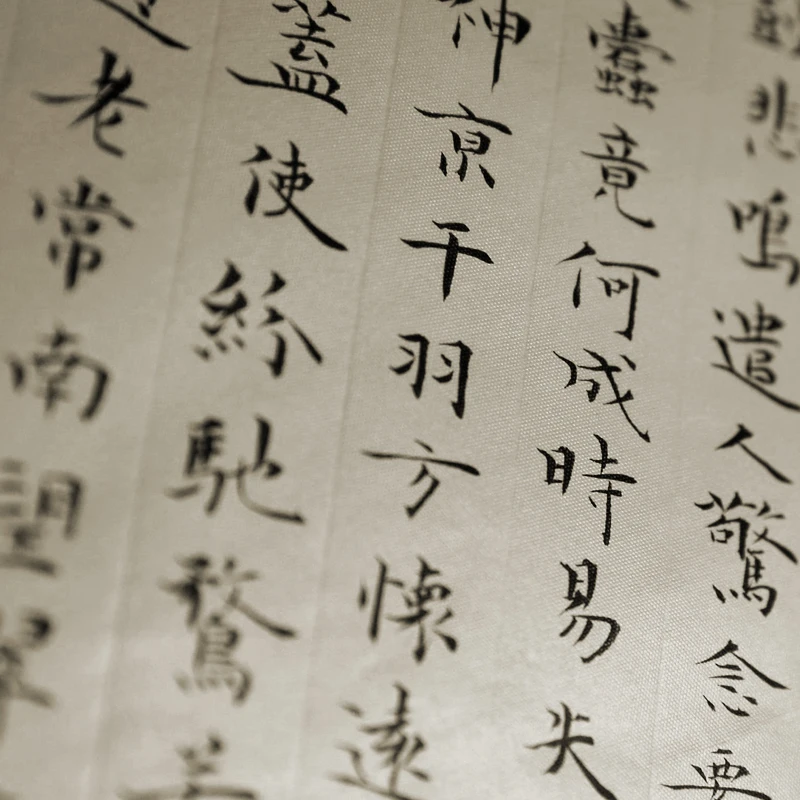 悲鳴遣人驚念要
蠹竟何成時易失
神亰干羽方懷遠
蓋使紛馳騖
老常南望翠